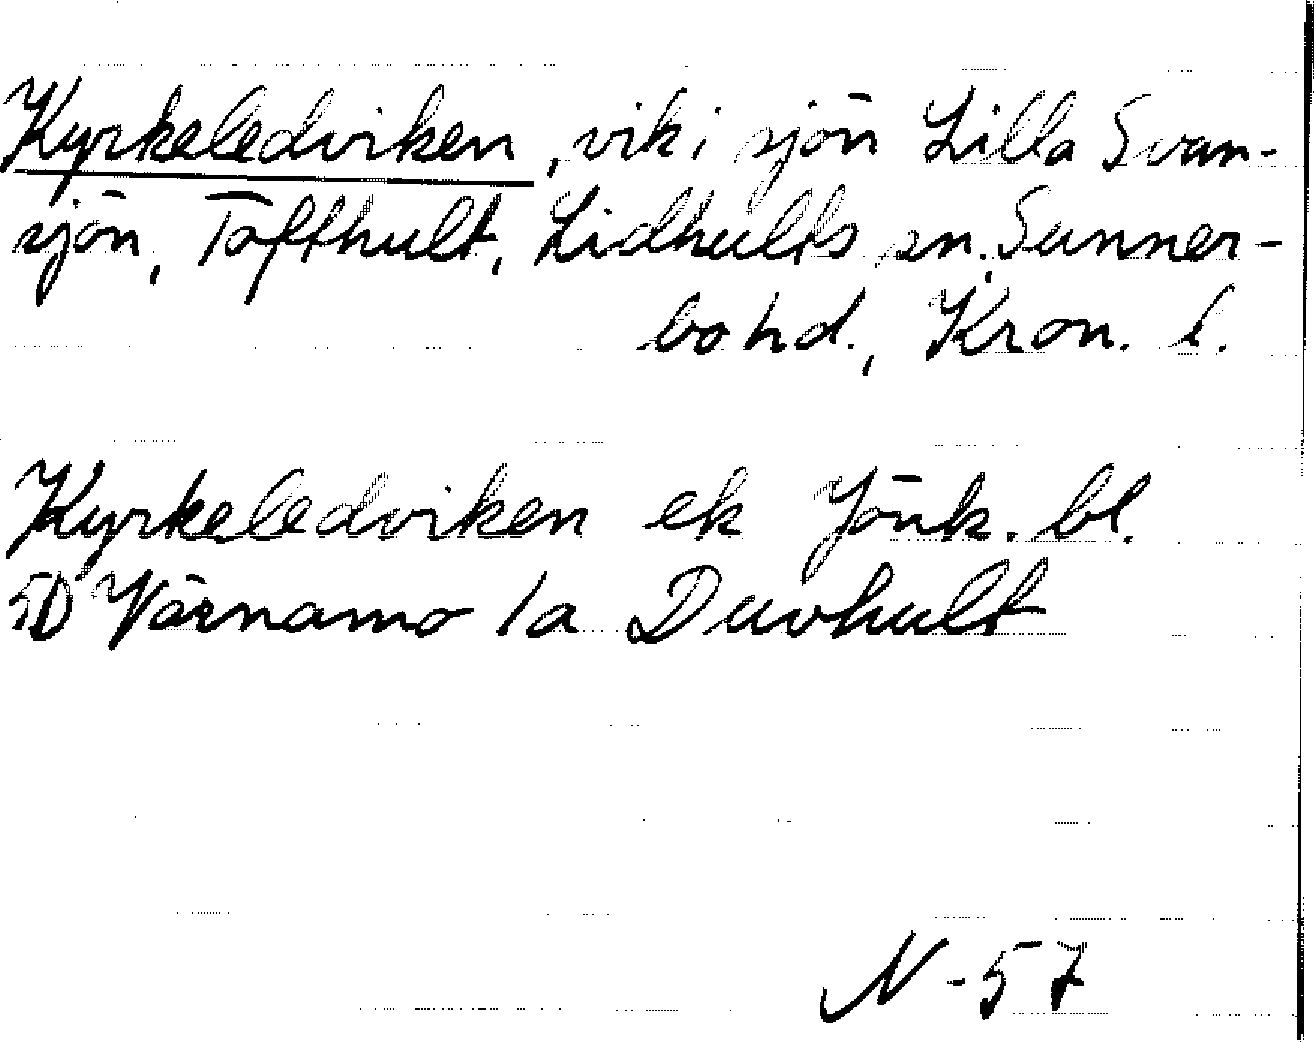 Kyrkeledviken, vik i sjön Lilla Svan-
sjön, Töfthult, Lidhults sn, Sunner-
bo hd., Kron. l.
Kyrkeledviken ek Jönk. bl.
5D Värnamo 1a Duvhult
N-57